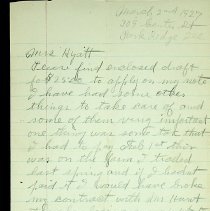 March 2nd 1927
205 Cent. St
Park Ridge Ill
Mrs Hyatt
Please find enclosed draft
for $25.00 to apply on my note
I have had some other
things to take care of and
some of them very important
one thing was some tax that
I had to pay Feb 1st this
was on the farm I traded
last spring and if I hadnt
paid it I would have broke
my contract with Mr Hunt